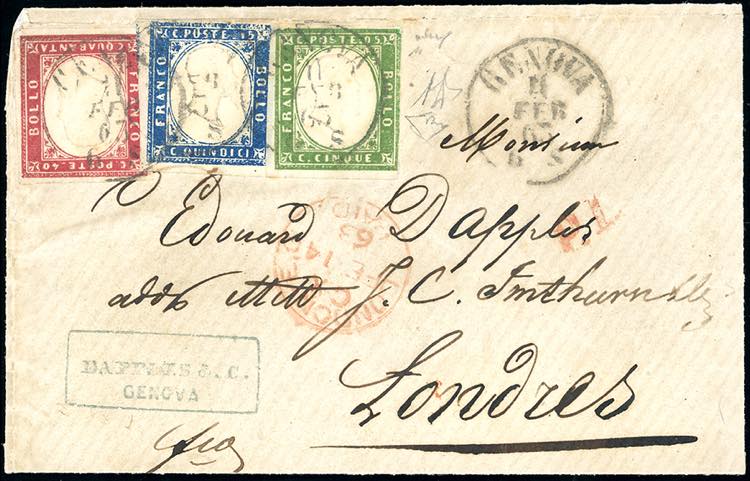 C. QUARANTA
BOLLO
FRANCO
C. POSTE. 40
C. POSTE. 15
FRANCO
BOLLO
C. QUINDICI
C. POSTE. 05
FRANCO
BOLLO
C. CINQUE
GENOVA
11
FEB
63
Monsieur
Edouard Dapples
LONDON
PAID
14
63
J. C. Imthurn
Londres
DAPPLES & C.
GENOVA